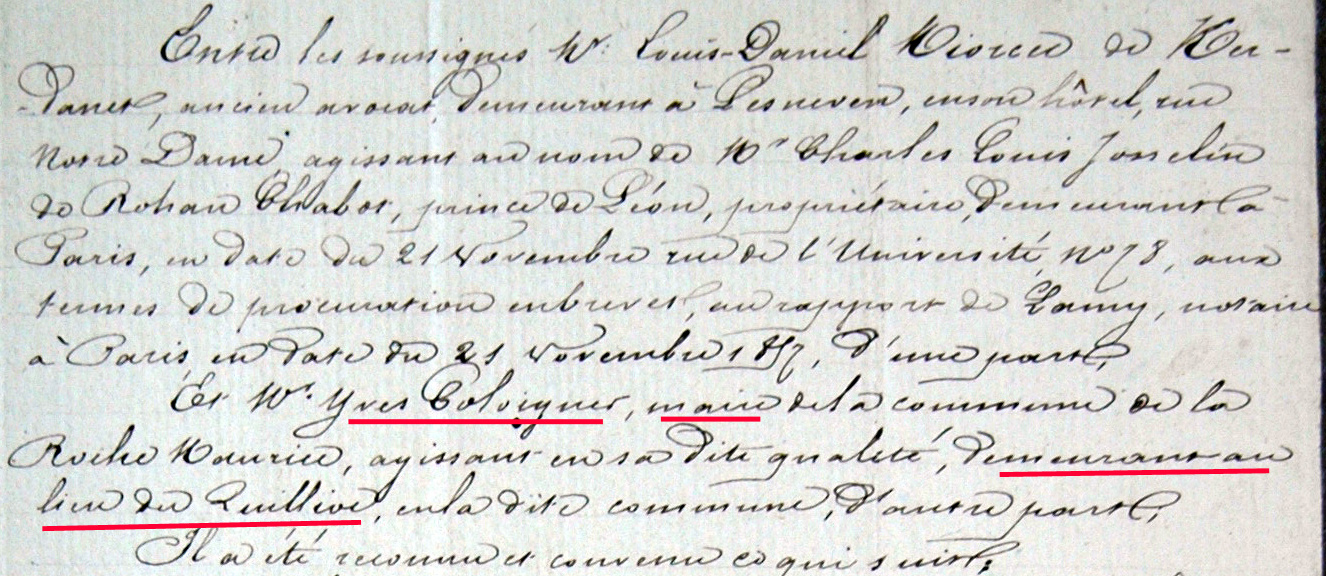 Entre les soussignés Mr. Louis-Daniel Miorcec de Ker-
-Danet, ancien avocat, demeurant à Lesneven, en son hôtel, rue
Notre Dame agissant au nom de Mr Charles Louis Josselin
de Rohan Chabot, prince de Léon, propriétaire, demeurant à
Paris, en date du 21 Novembre rue de l'Université, no 78, aux
termes de procuration en brevet, au rapport de Lamy, notaire
à Paris, en date du 21 novembre 1857, d'une part,
Et Mr. Yves Coloigner, maire de la commune de la
Roche Maurice, agissant en sa dite qualité, demeurant au
lieu du Quillivé, en la dite commune, d'autre part,
Il a été reconnu et convenu ce qui suit: